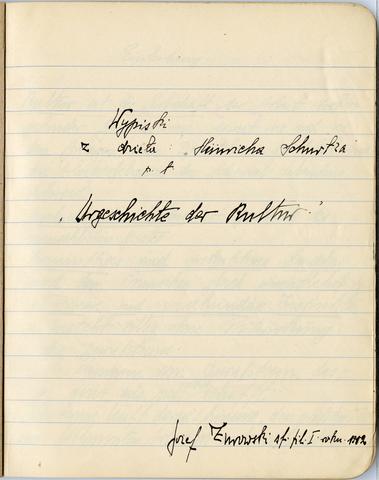 Wypiski
z dzieła: Heinricha Schurtza
p. t
„Urgeschichte der Kultur."
Józef Żurowski sł. fil. I roku. 1912